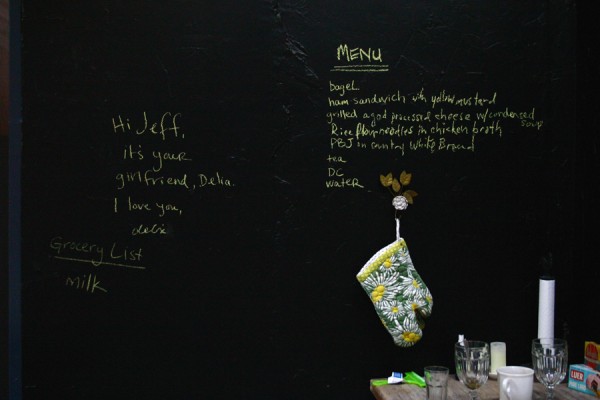 Hi Jeff,
it's your
girlfriend, Delia.
I love you,
Grocery List
milk
MENU
bagel
ham sandwich with yellow mustard
grilled aged processed cheese w/condensed
soup
Rice flour needles in chicken broth
PBJ on country White Bread
tea
DC
water